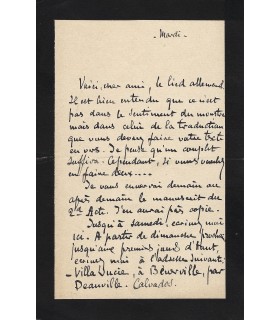 - Mardi -
Voici, cher ami, le lied allemand.
Il est bien entendu que ce n'est
pas dans le sentiment du monstre
mais dans celui de la traduction
que vous devrez faire votre
en vers. Je pense qu'un couplet
suffira. Cependant, si vous voulez
en faire deux....
Je vous enverrai demain ou
après demain le manuscrit du
2e Acte. J'en aurai pris copie.
Jusqu'à samedi, écrivez moi
ici. A partir de dimanche prochain
jusqu'aux premiers jours d'Août,
écrivez moi à l'adresse suivante:
- Villa Lucia, à Bénerville, par
Deauville. Calvados.